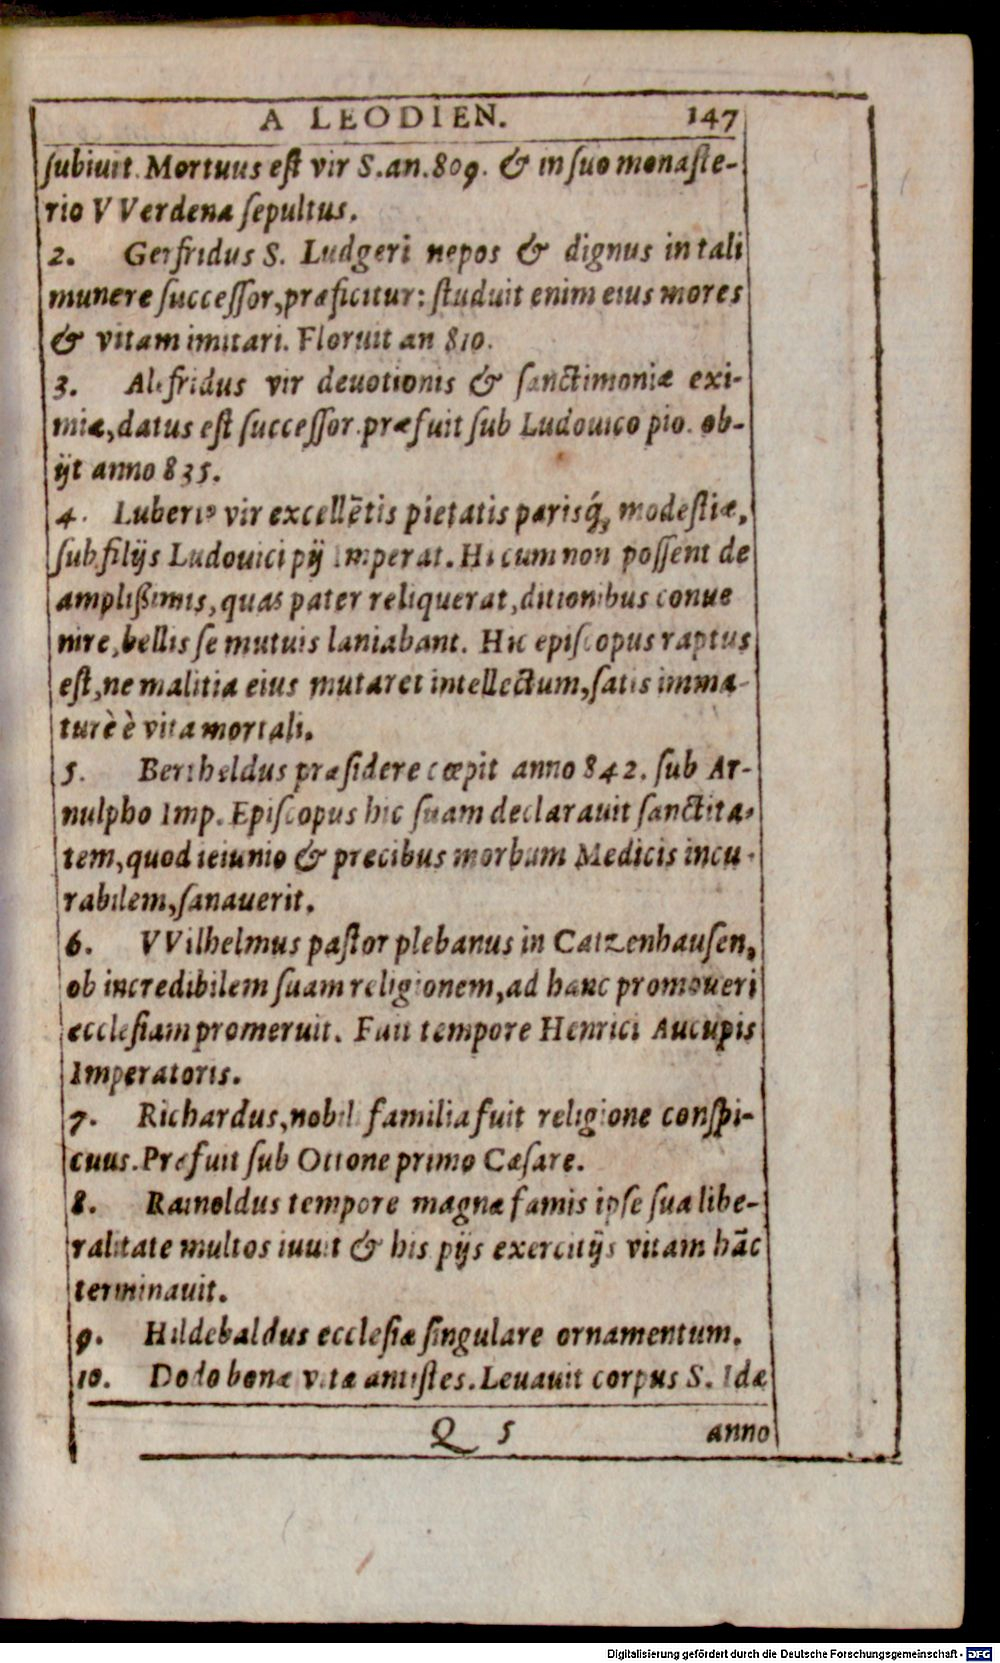 A LEODIEN. 147
ſubiuit. Mortuus eſt vir S. an. 809. & in ſuo monaſte-
rio VVerdena ſepultus.
2. Gerfridus S. Ludgeri nepos & dignus in tali
munere ſucceſſor, præficitur: ſtuduit enim eius mores
& vitam imitari. Floruit an 810.
3. Alefridus vir deuotionis & ſanctimoniæ exi-
miæ, datus eſt ſucceſſor. præfuit ſub Ludouico pio. ob-
ijt anno 835.
4. Lubertꝰ vir excellẽtis pietatis parisq́; modeſtiæ,
ſub filijs Ludouici pij Imperat. Hi cum non poſſent de
ampliſsimis, quas pater reliquerat, ditionibus conue
nire, bellis ſe mutuis laniabant. Hic epiſcopus raptus
eſt, ne malitia eius mutaret intellectum, ſatis imma-
turè è vita mortali.
5. Bertheldus præſidere cœpit anno 842. ſub Ar-
nulpho Imp. Epiſcopus hic ſuam declarauit ſanctita-
tem, quod ieiunio & precibus morbum Medicis incu-
rabilem, ſanauerit.
6. VVilhelmus paſtor plebanus in Catzenhauſen,
ob incredibilem ſuam religionem, ad hanc promoueri
eccleſiam promeruit. Fuit tempore Henrici Aucupis
Imperatoris.
7. Richardus, nobili familia fuit religione conſpi-
cuus. Præfuit ſub Ottone primo Cæſare.
8. Rainoldus tempore magnæ famis ipſe ſua libe-
ralitate multos iuuit & his pijs exercitijs vitam hãc
terminauit.
9. Hildebaldus eccleſiæ ſingulare ornamentum.
10. Dodo bonæ vitæ antiſtes. Leuauit corpus S. Idæ
Q 5 anno
Digitalisierung gefördert durch die Deutsche Forschungsgemeinschaft - DFG